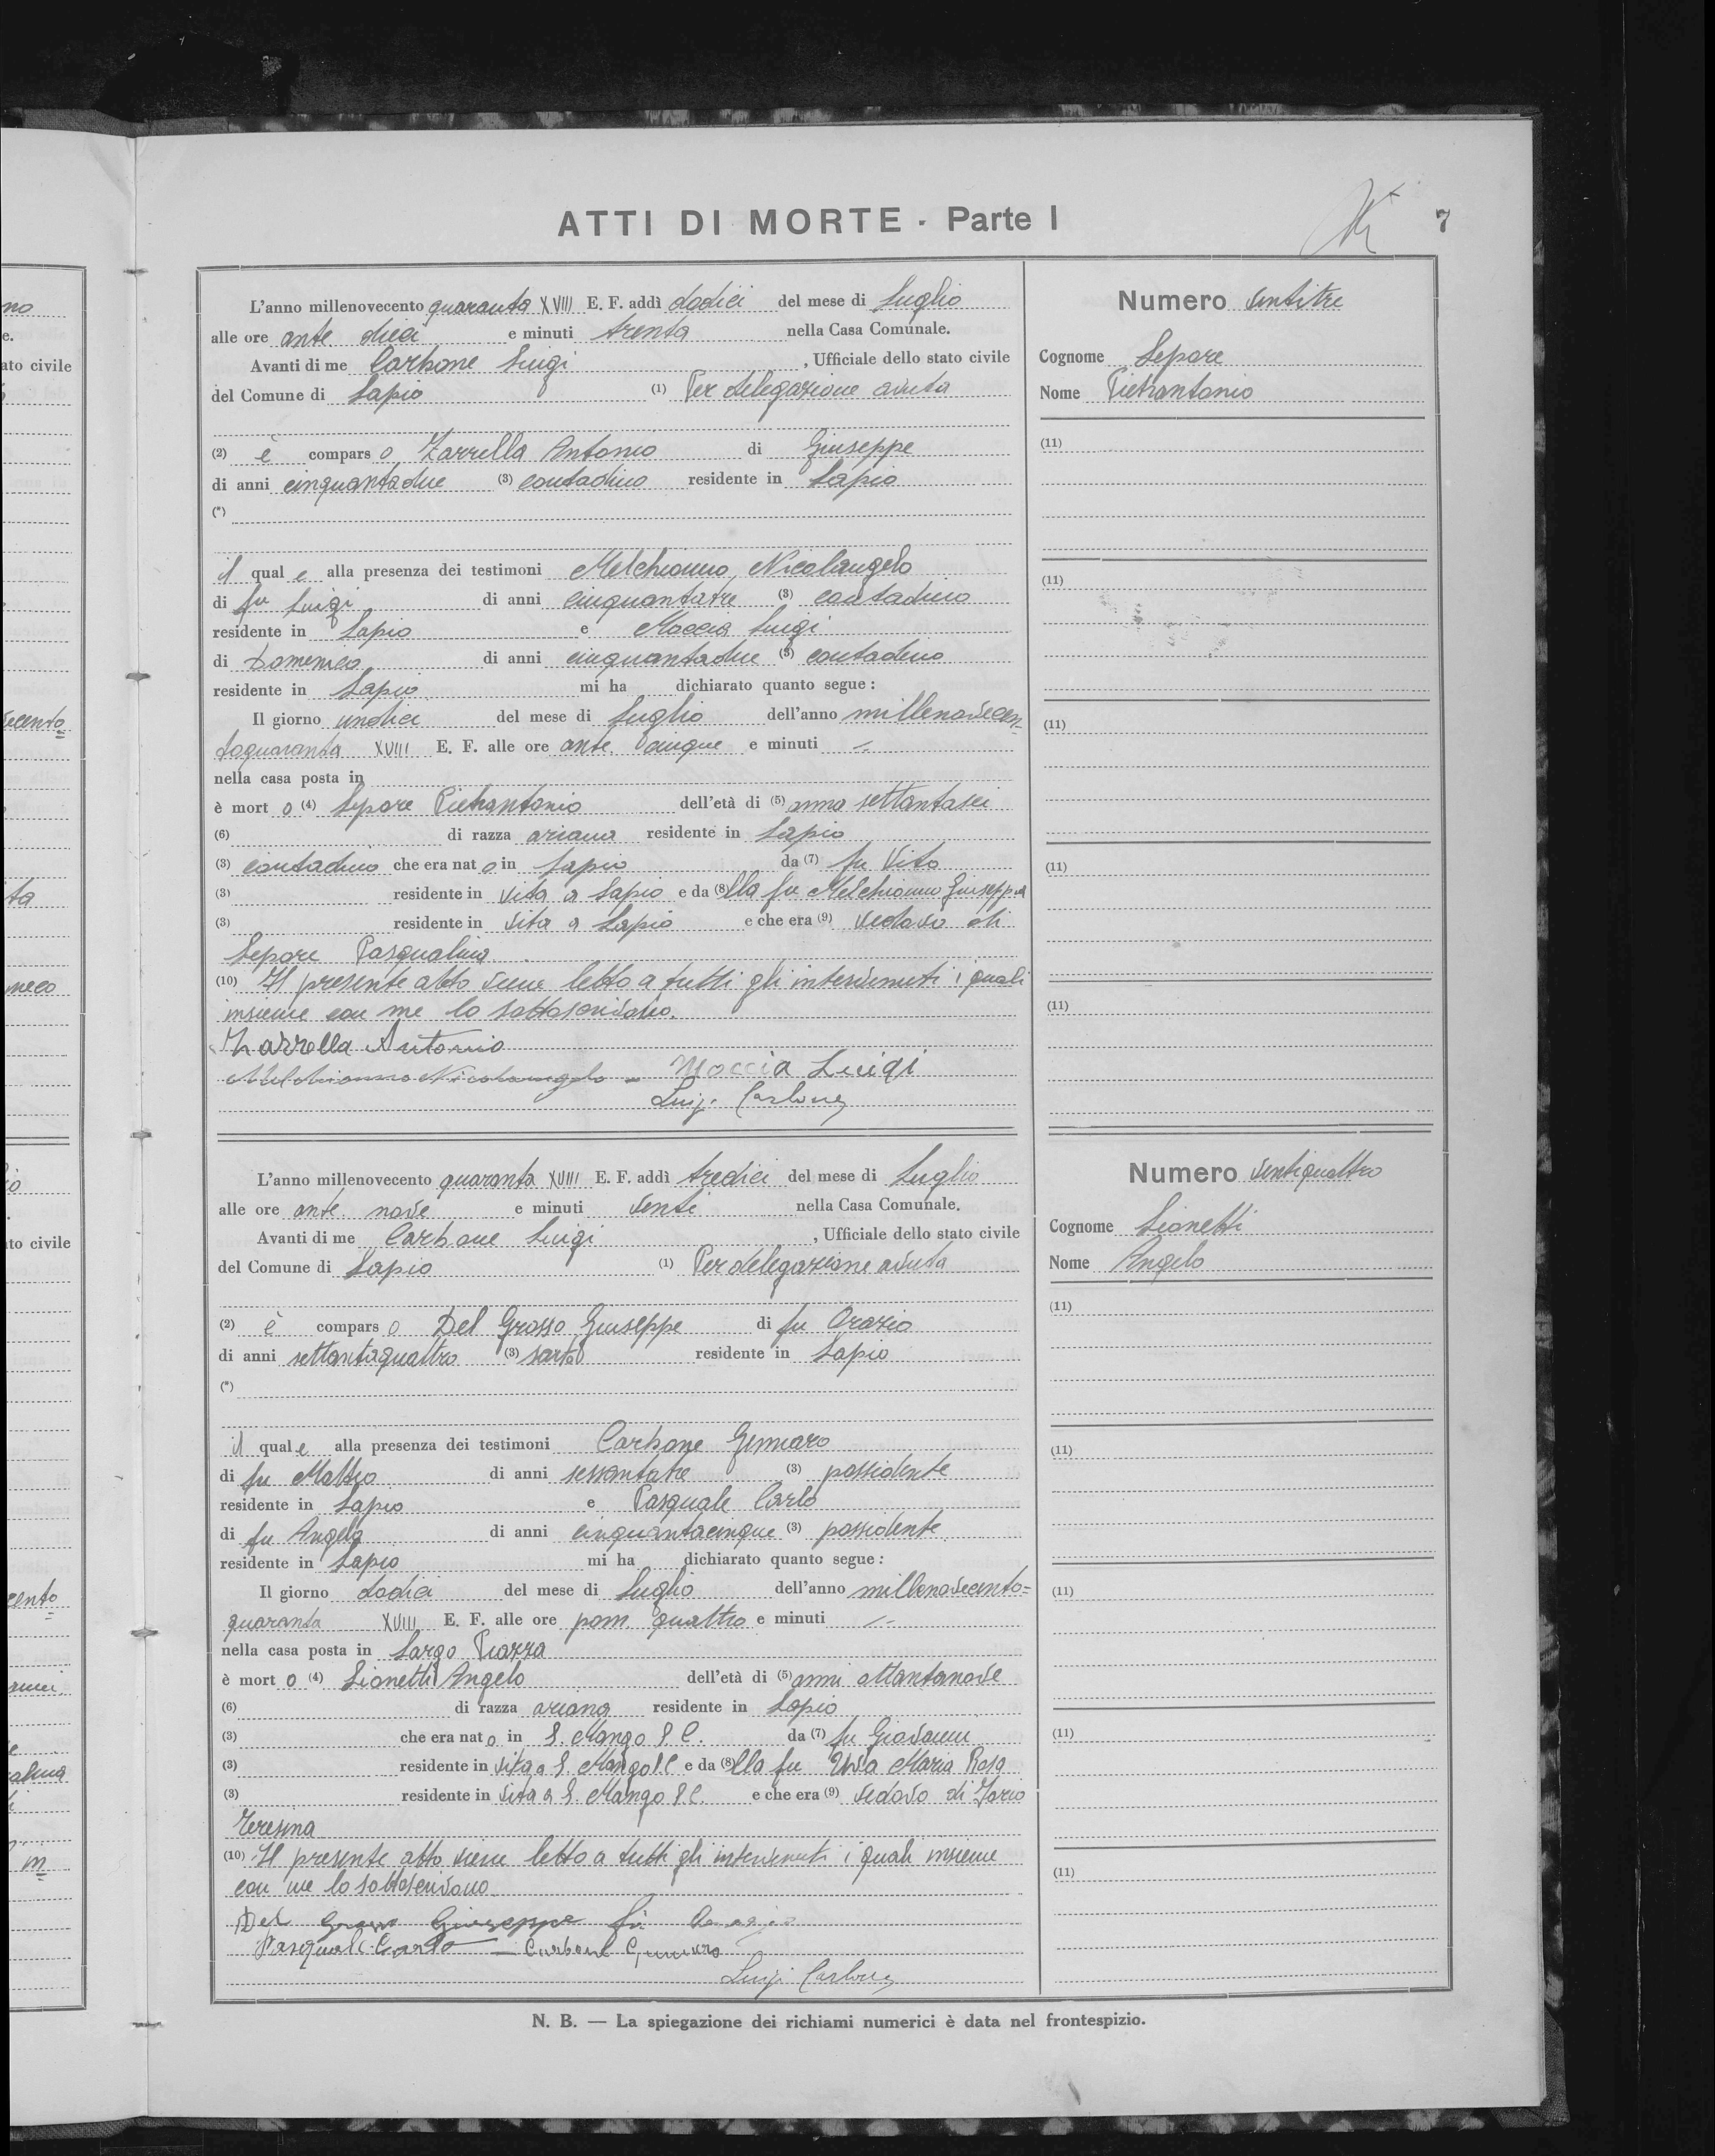 ATTI DI MORTE - Parte I
7
L'anno millenovecento quaranta XVIII E. F. addì dodici del mese di Luglio
alle ore ante dieci e minuti trenta nella Casa Comunale.
Avanti di me Carbone Luigi, Ufficiale dello stato civile
del Comune di Lapio (1) Per delegazione avuta
(2) è compars o Zarrella Antonio di Giuseppe
di anni cinquantadue (3) contadino residente in Lapio
(*)
il qual e alla presenza dei testimoni Melchionno Nicolangelo
di fu Luigi di anni cinquantatre (3) contadino
residente in Lapio e Moccia Luigi
di Domenico di anni cinquantadue (3) contadino
residente in Lapio mi ha dichiarato quanto segue:
Il giorno undici del mese di Luglio dell'anno millenovecen-
toquaranta XVIII E. F. alle ore ante. cinque e minuti -
nella casa posta in
è mort o (4) Lepore Pietrantonio dell'età di (5) anno settantasei
(6) di razza ariana residente in Lapio
(3) contadino che era nat o in Lapio da (7) fu Vito
(3) residente in vita a Lapio e da (8) lla fu Melchionno Giuseppa
(3) residente in vita a Lapio e che era (9) vedovo di
Lepore Pasqualina
(10) Il presente atto viene letto a tutti gli intervenuti i quali
insieme con me lo sottoscrivono.
Zarrella Antonio
Melchionno Nicolangelo - Moccia Luigi
Luigi Carbone
Numero ventitre
Cognome Lepore
Nome Pietrantonio
(11)
(11)
(11)
(11)
(11)
L'anno millenovecento quaranta XVIII E. F. addì tredici del mese di Luglio
alle ore ante. nove e minuti venti nella Casa Comunale.
Avanti di me Carbone Luigi, Ufficiale dello stato civile
del Comune di Lapio (1) Per delegazione avuta
(2) è compars o Del Grosso Giuseppe di fu Orazio
di anni settantaquattro (3) sarto residente in Lapio
(*)
il qual e alla presenza dei testimoni Carbone Gennaro
di fu Mattia di anni sessantatre (3) possidente
residente in Lapio e Pasquale Carlo
di fu Angelo di anni cinquantacinque (3) possidente
residente in Lapio mi ha dichiarato quanto segue:
Il giorno dodici del mese di Luglio dell'anno millenovecento=
quaranta XVIII E. F. alle ore pom. quattro e minuti -
nella casa posta in Largo Piazza
è mort o (4) Lionetti Angelo dell'età di (5) anni ottantanove
(6) di razza ariana residente in Lapio
(3) che era nat o in S. Mango S. C. da (7) fu Giovanni
(3) residente in vita a S. Mango S.C e da (8) lla fu Uva Maria Rosa
(3) residente in vita a S. Mango S. C. e che era (9) vedovo di Iorio
Teresina
(10) Il presente atto viene letto a tutti gli intervenuti i quali insieme
con me lo sottoscrivono.
Del Grosso Giuseppe fu Orazio
Pasquale Carlo - Carbone Gennaro
Luigi Carbone
Numero ventiquattro
Cognome Lionetti
Nome Angelo
(11)
(11)
(11)
(11)
(11)
N. B. — La spiegazione dei richiami numerici è data nel frontespizio.